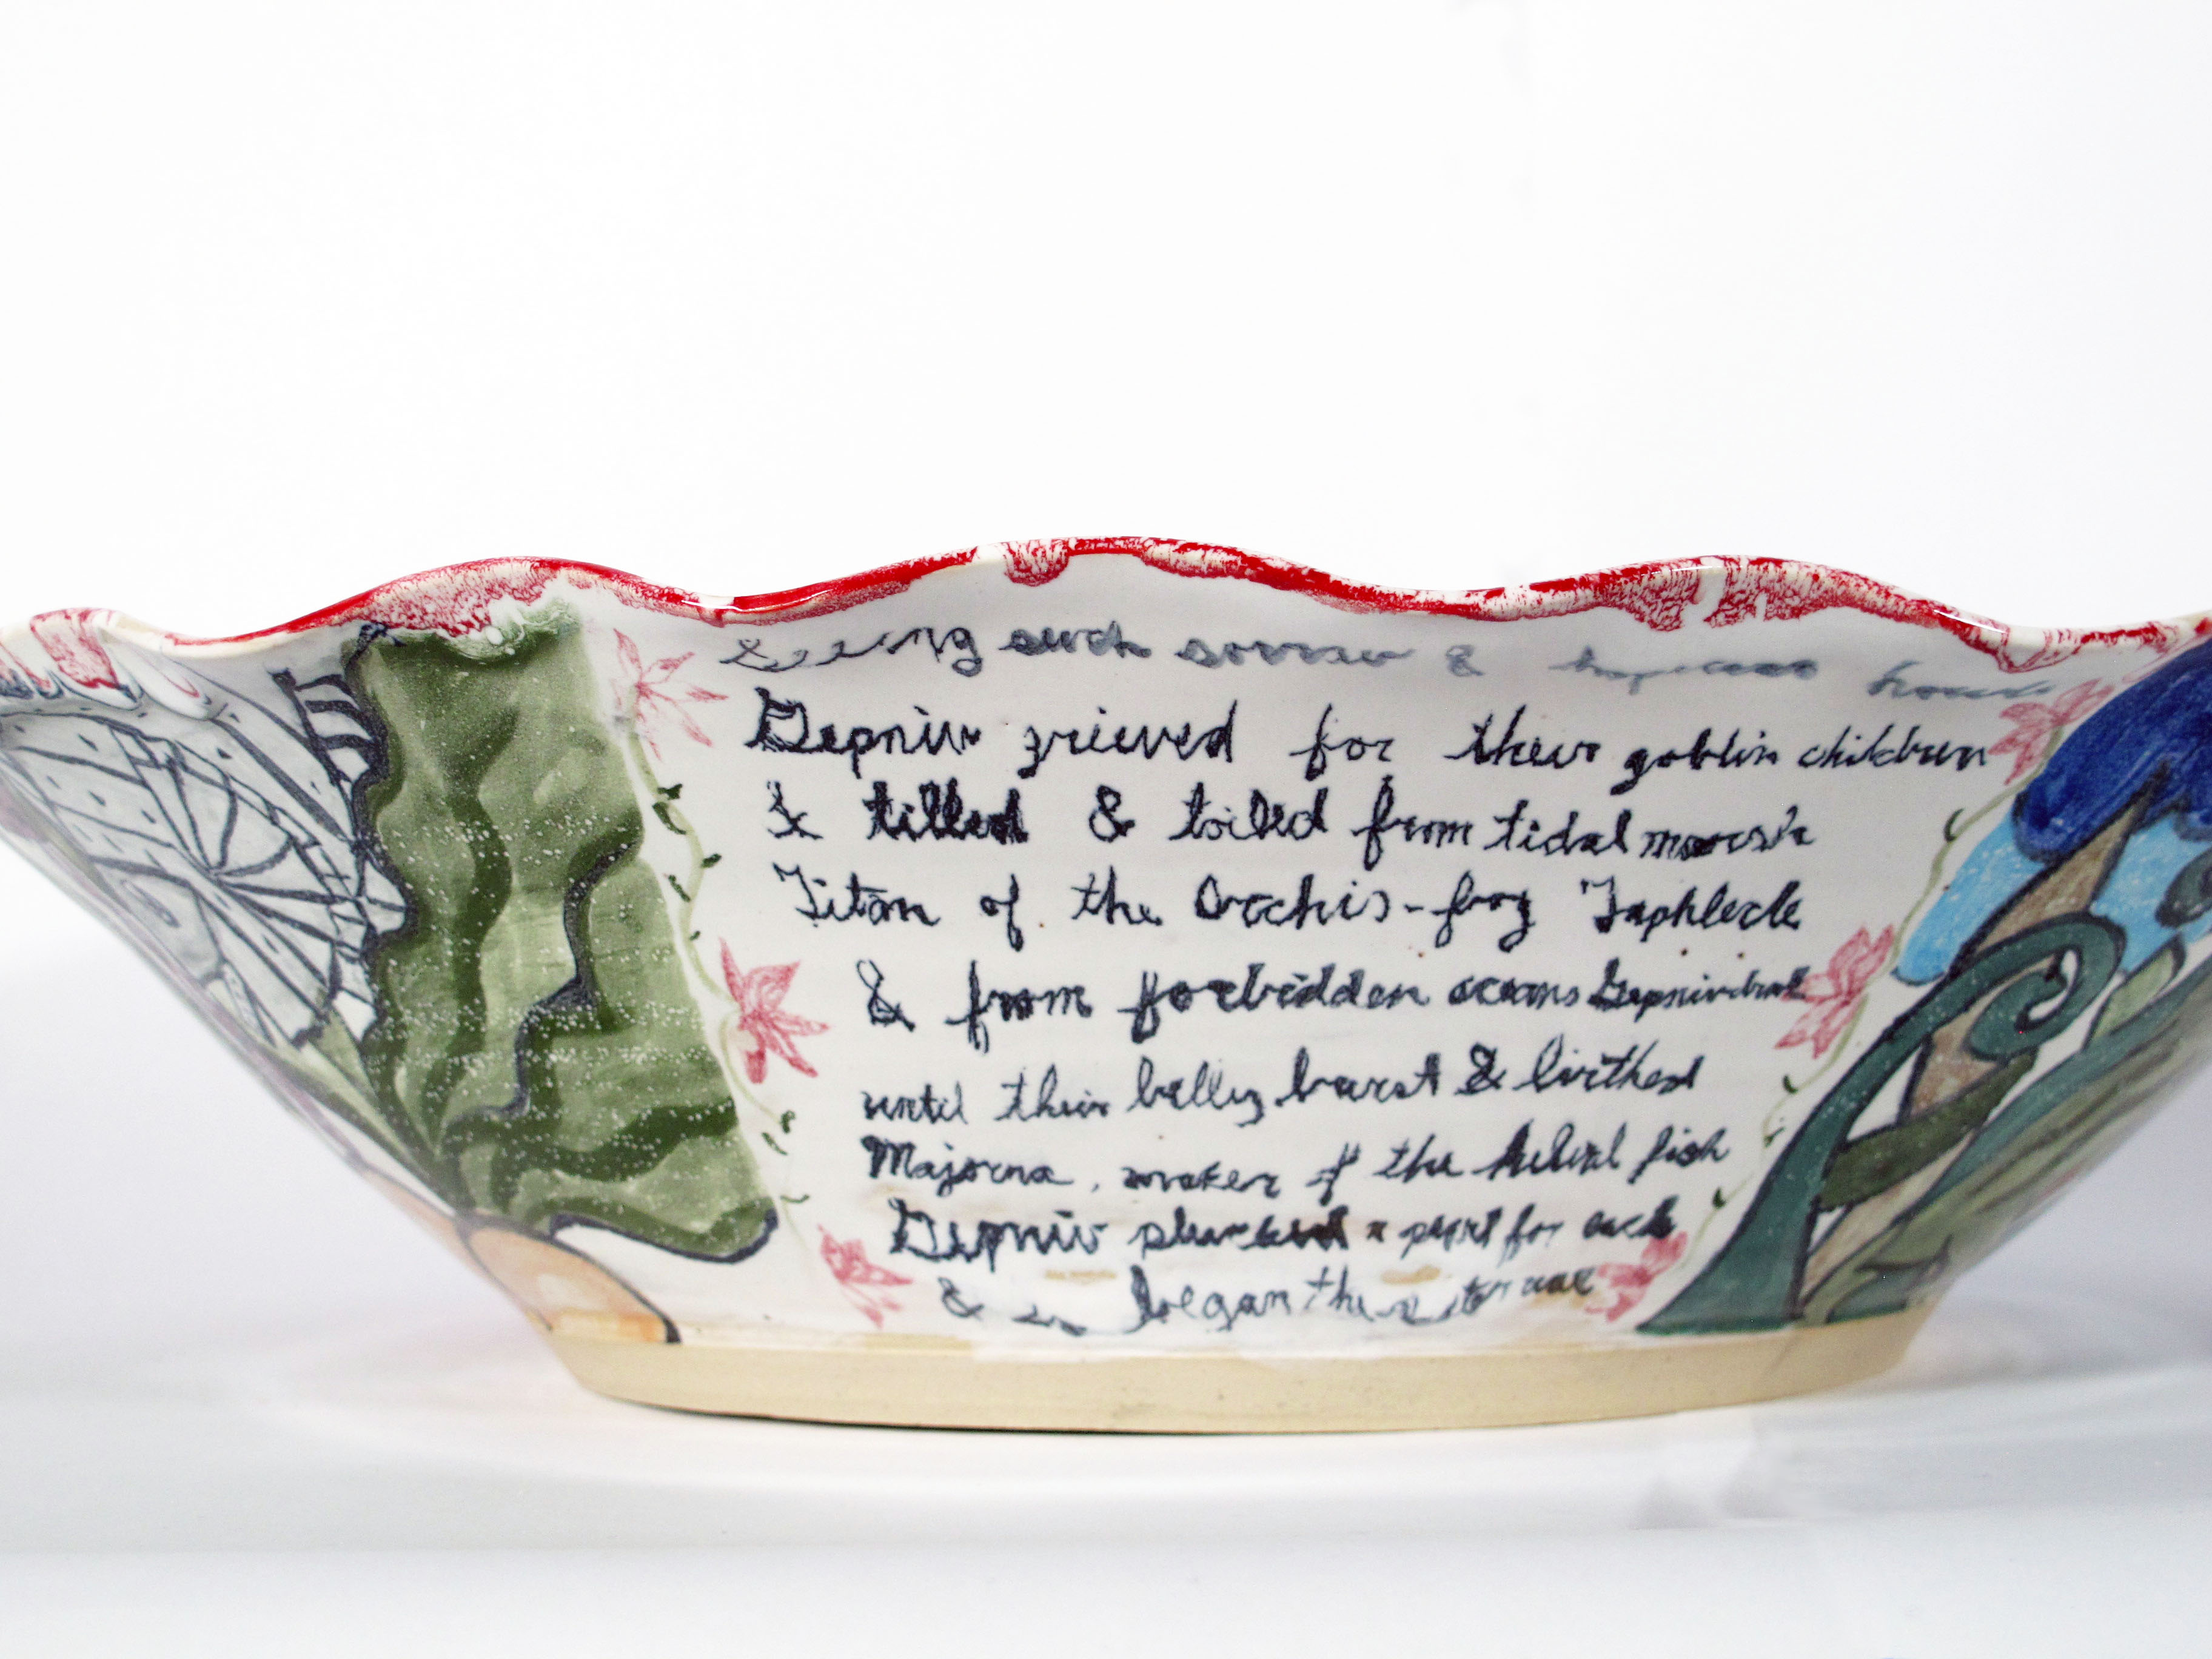 Seeing such sorrow &
Gepniv grieved for their goblin children
& tilled & toiled from tidal marsh
Titan of the Orchis-frog Taphlede
& from forbidden oceans Gepniv drank
until their belly burst & birthed
Majorna, maker of the helical fish
Gepniv plucked a pearl for each
& began the